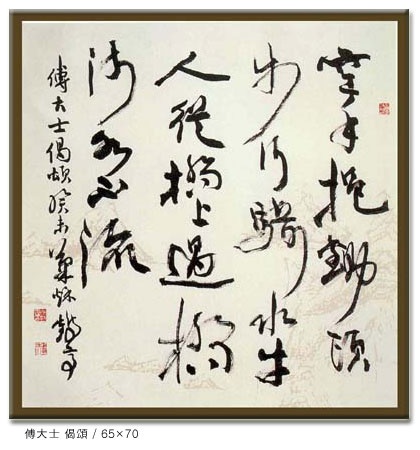 空手把鋤頭
步行騎水牛
人從橋上過橋
流水不流
傅大士偈頌 癸未
傅大士 偈頌 / 65×70